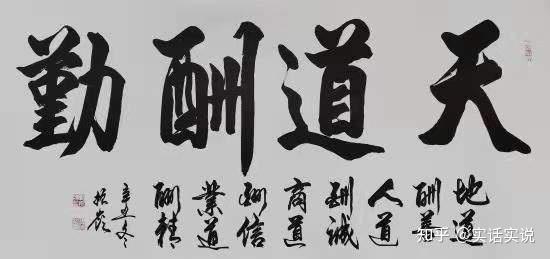 天道酬勤
地道
酬善
人道
酬誠
商道
酬信
業道
酬精
辛丑冬
知乎 @实话实说